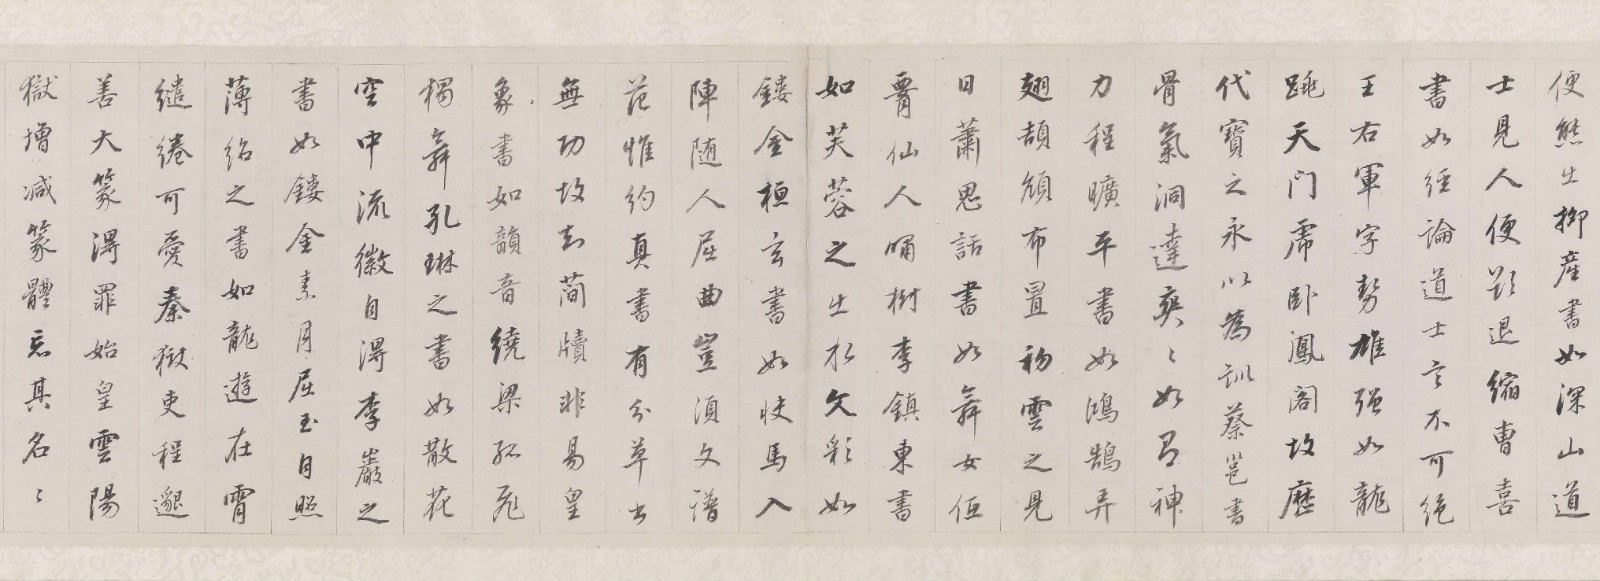 便態出柳産書如深山道
士見人便欲退縮曹喜
書如經論道士言不可絕
王右軍字勢雄强如龍
跳天門虎卧鳳閣故歷
代寶之永以為訓蔡邕書
骨氣洞達爽〻如有神
力程曠平書如鴻鵠弄
翅頡頏布置初雲之見
日蕭思話書如舞女低
署仙人嘯樹李鎮東書
如芙蓉之出水文彩如
鏤金桓玄書如快馬入
陣隨人屈曲豈須文譜
范惟約真書有分草書
無功故知簡牘非易皇
象書如韻音繞梁孤飛
獨舞孔琳之書如散花
空中流徽自得李巖之
書如鏤金素月屈玉自照
薄紹之書如龍遊在霄
繾綣可愛秦獄吏程邈
善大篆得罪始皇雲陽
獄增減篆體去其名〻